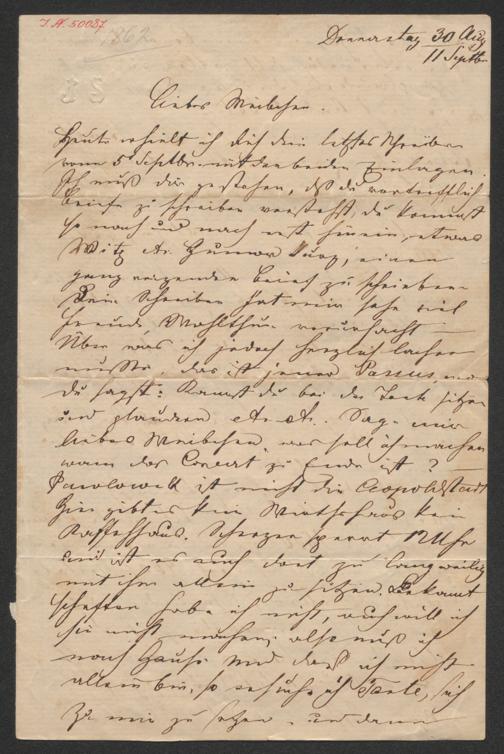 J. N. 50037
1862
Donnerstag 30 Aug
11 Septbr
Liebes Weibchen.
Heute erhielt ich dein letztes Schreiben
vom 5 Septbr. mit den beiden Einlagen.
Ich muß dir gestehen, daß du vortrefflich
Briefe zu schreiben verstehst, du kommst
so nach und nach erst hinein, etwas
Witz etc. Humor kurz, einen
ganz reizenden Brief zu schreiben
Dein Schreiben hat mir sehr viel
Freude, Wohlthun verursacht
Über was ich jedoch herzlich lachen
mußte, das ist jener Passus, wo
du sagst: Kannst du bei der sitzen
und plaudern etc. etc. Sage mir
liebes Weibchen, was soll ich machen
wann das Concert zu Ende ist?
Pawlowsk ist nicht die Leopoldstadt
hier gibt es kein Wirthshaus kein
Kaffehhaus. sperrt 12 Uhr
und ist es auch dort zu langweilig
mit ihm allein zu sitzen. Bekannt
schaften habe ich nicht, auch will ich
sie nicht machen; also muß ich
nach Hause und daß ich nicht
allein bin, so ersuche ich Tante, sich
zu mir zu setzen, und dann